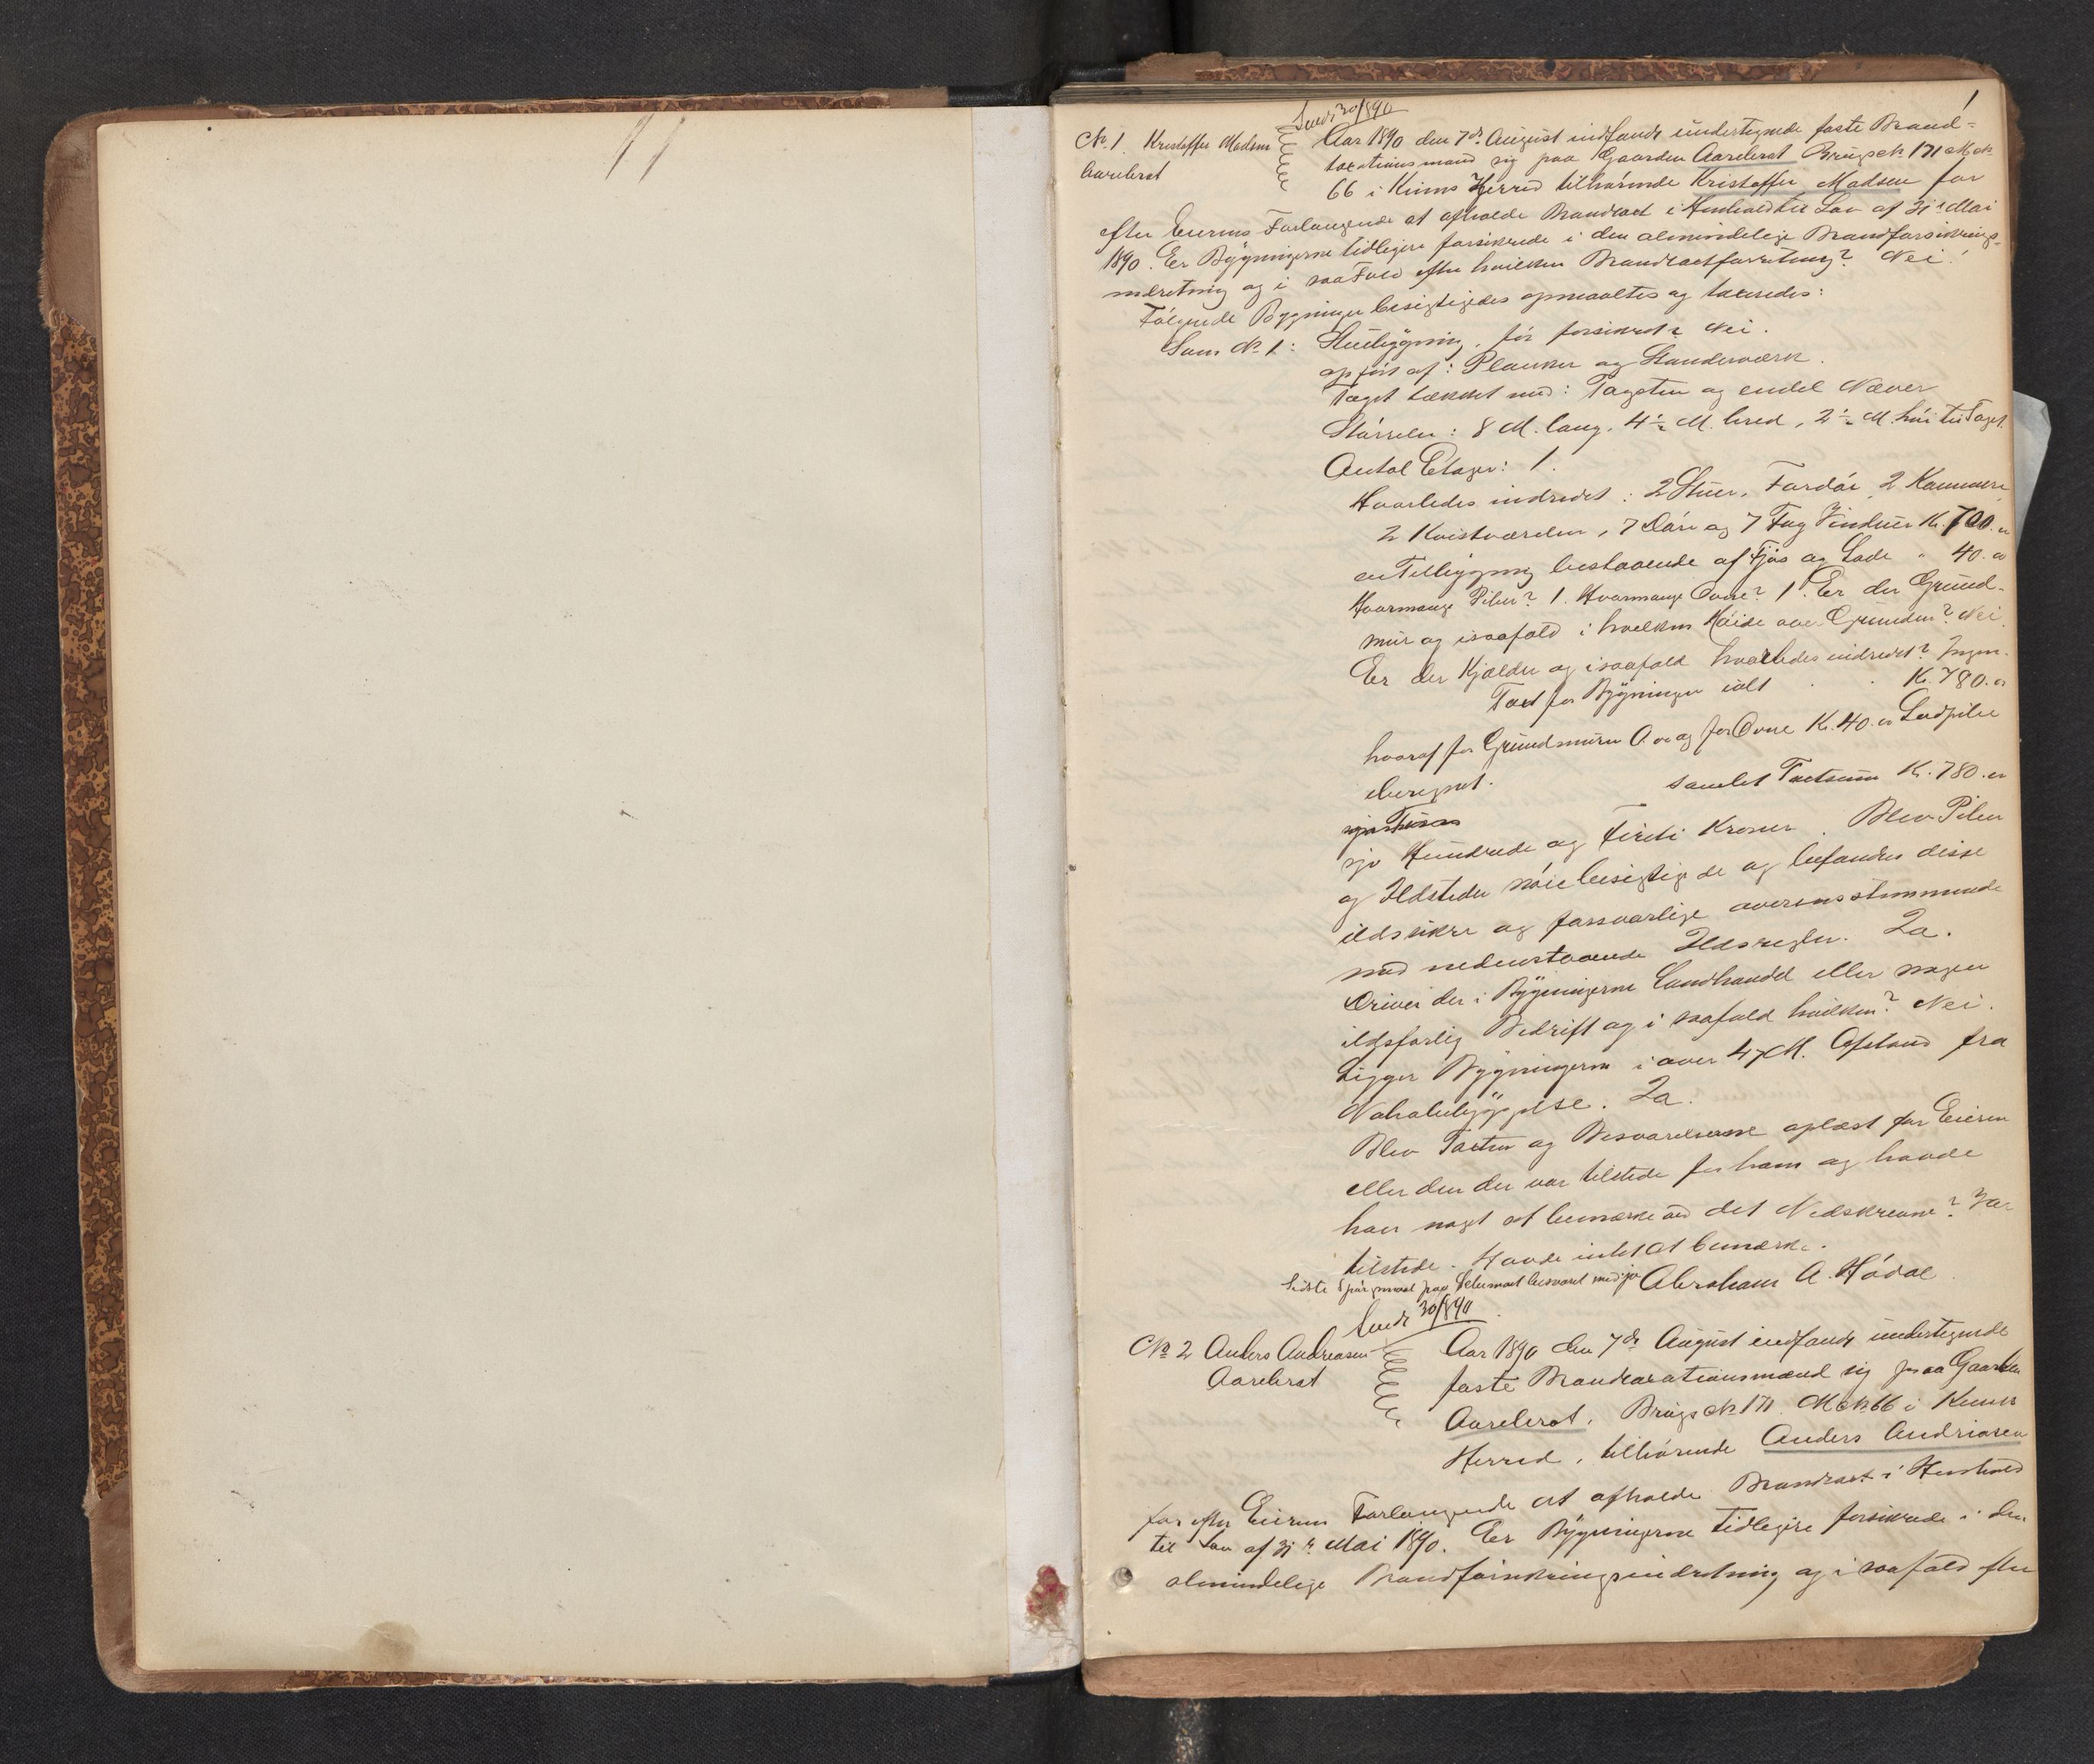 1
Sendt 30/8 90
No 1. Kristoffer Madsen
Aarebrot
Aar 1890 den 7de August indfandt undertegnede faste Brand-
taxationsmænd sig paa Gaarden Aarebrot Brugs No 171 M No
66 i Kinns Herred tilhørende Kristoffer Madsen for
efter Eierens Forlangende at afholde Brandtaxt i Henhold til Lov af 31te Mai
1890. Er Bygningerne tidligere forsikrede i den almindelige Brandforsikrings-
indretning og i saa Fald efter hvilken Brandtaxtforretning? Nei.
Følgende Bygninger besigtigedes opmaaltes og taxeredes:
Som No 1: Stuebygning, før forsikret? Nei.
opført af: Planker og Standerværk.
Taget tækket med: Tagsten og endel Næver
Størrelse: 8 M. lang, 4½ M. bred, 2½ M. høi til Taget.
Antal Etager: 1.
Hvorledes indredet: 2 Stuer, Fordør, 2 Kammere,
2 Kvistværelser, 7 Døre og 7 Fag Vinduer K. 700.00
en Tilbygning bestaaende af Fjøs og Lade " 40.00
Hvormange Piber? 1. Hvormange Ovne? 1. Er der Grund-
mur og isaafald i hvilken Høide over Grunden? Nei.
Er der Kjælder og isaafald hvorledes indredet? Ingen.
Taxt for Bygningen ialt K. 780.00
hvoraf for Grundmuren 0.00 og for Ovne K. 40.00 Jordpiber
uberegnet. samlet Taxtsum K. 780.00
syv Hundrede og Fireti Kroner. Blev Piben
og Ildsteder nøie besigtigede og befandtes disse
ildsikre og forsvarlige overensstemmende
med nedenstaaende Ildsregler. Ja.
Driver der i Bygningerne Landhandel eller nogen
ildsfarlig Bedrift og i saafald hvilken? Nei.
Ligger Bygningerne i over 47 M. Afstand fra
Nabobebyggelse. Ja.
Blev Taxten og Besvarelserne oplæst for Eieren
eller den der var tilstede for ham og havde
han noget at bemærke ved det Nedskrevne? Var
tilstede. Havde intet at bemærke.
Sidste Spørgsmaal paa Schemaet besvaret med ja Abraham A. Hødal
Sendt 30/8 90
No 2 Anders Andreasen
Aarebrot
Aar 1890 den 7de August indfandt undertegnede
faste Brandtaxationsmænd sig paa Gaarden
Aarebrot, Brugs No 171. M No 66 i Kinns
Herred, tilhørende Anders Andriasen
for efter Eierens Forlangende at afholde Brandtaxt i Henhold
til Lov af 31te Mai 1890. Er Bygningerne tidligere forsikrede i den
almindelige Brandforsikringsindretning og i saafald efter